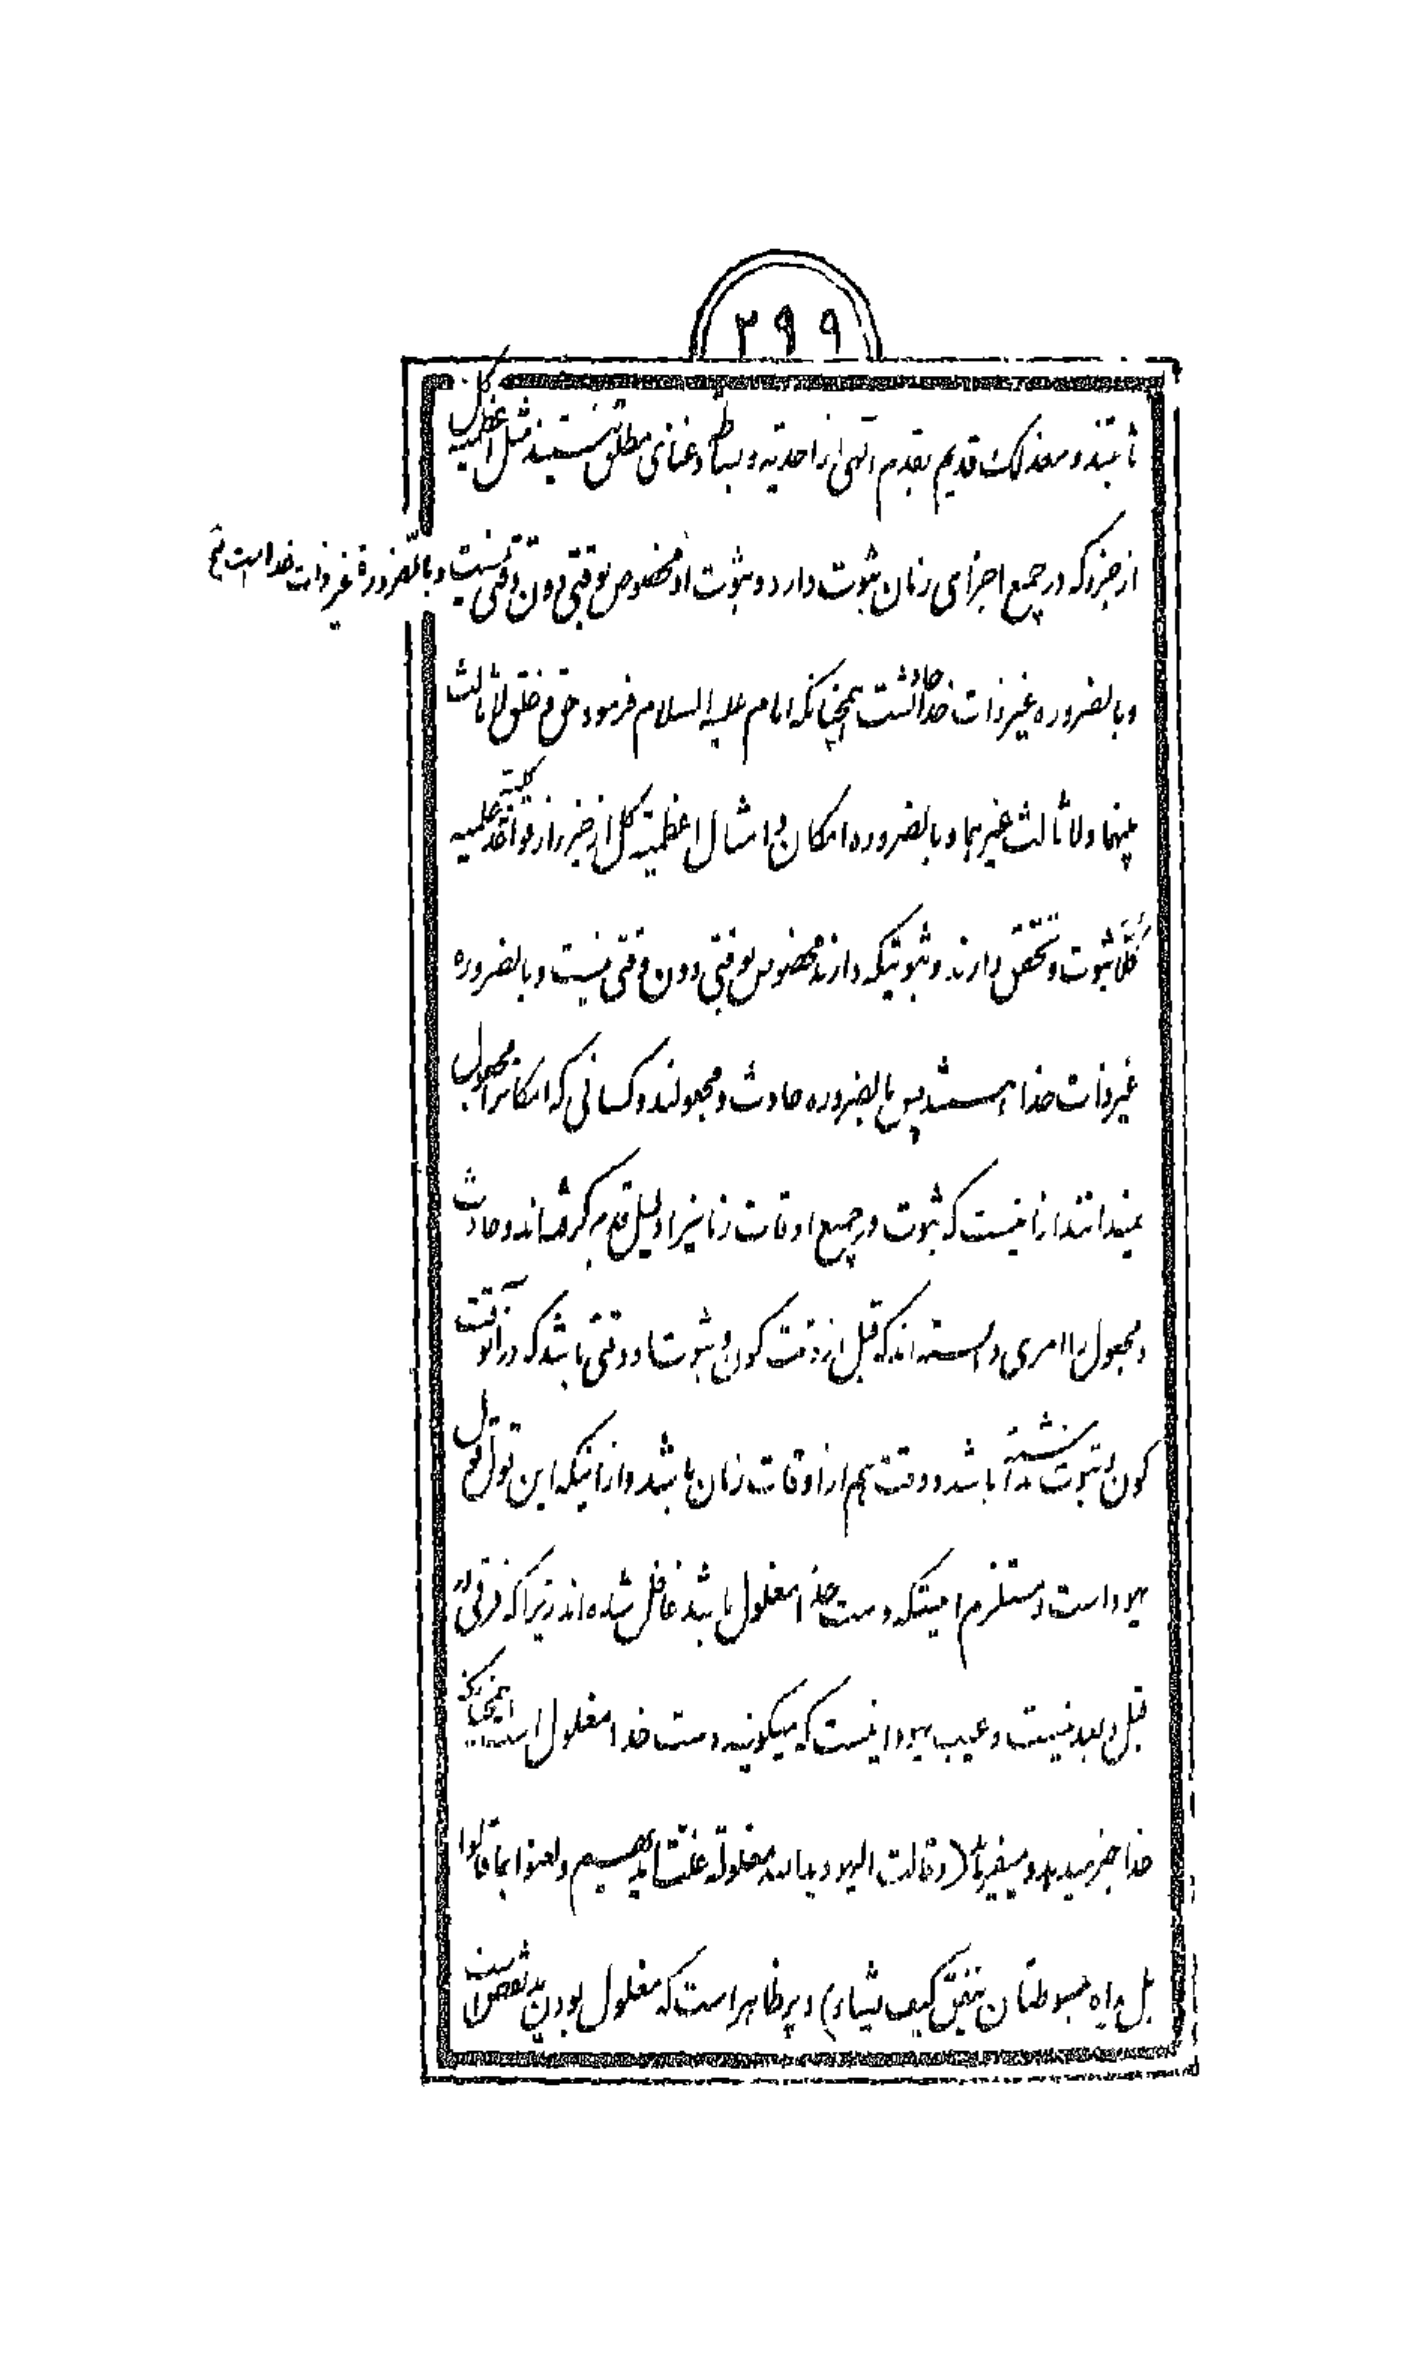 ۲۹۹
ثابتند و معذلک قدیم بقدم الهی از احدیة و بساطة و غنای مطلق نیستند مثل اعظمیة کل
از جزء که در جمیع اجزای زمان ثبوت دارد و ثبوت او مخصوص بوقتی دون وقتی نیست و بالضرورة غیر ذات خداست
و بالضروره غیر ذات خدا حادثست همچنانکه امام علیه السلام فرمود حق و خلق لا ثالث
بینهما و لا ثالث غیرهما و بالضروره امکان و امثال اعظمیة کل از جزء از قواعد کلیة علمیه
کلا ثبوت و تحقق دارند و ثبوتیکه دارند مخصوص بوقتی دون وقتی نیست و بالضروره
غیر ذات خدا هستند پس بالضروره حادث و مجعولند و کسانی که امکانرا مجعول
نمیدانند از آنست که ثبوت در جمیع اوقات زمانیرا دلیل قدم گرفته‌اند و حادث
و مجعول را امری دانسته‌اند که قبل از وقت کون و ثبوت او وقتی باشد که در آنوقت
کون و ثبوت نداشته باشد و وقت هم از اوقات زمان باشد و از اینکه این قول قول
یهود است و مستلزم اینستکه دست خدا مغلول باشد غافل شده‌اند زیرا که فرقی در
قبل و بعد نیست و عیب یهود اینست که میگویند دست خدا مغلول است همچنانکه
خدا خبر میدهد و میفرماید (و قالت الیهود ید الله مغلولة غلت ایدیهم و لعنوا بما قالوا
بل یداه مبسوطتان ینفق کیف یشاء) و پر ظاهر است که مغلول بودن ید نقص است